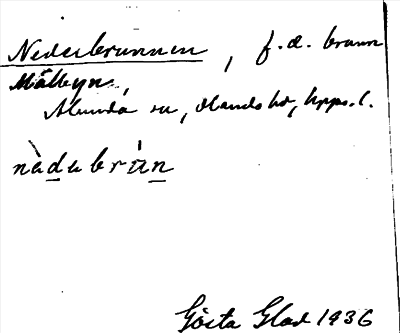 Nederbrunnen, f.d. brunn
Målbyn,
Almunda sn, Olands hd, Upps. l.
nèdebrùn
Gösta Glad 1936